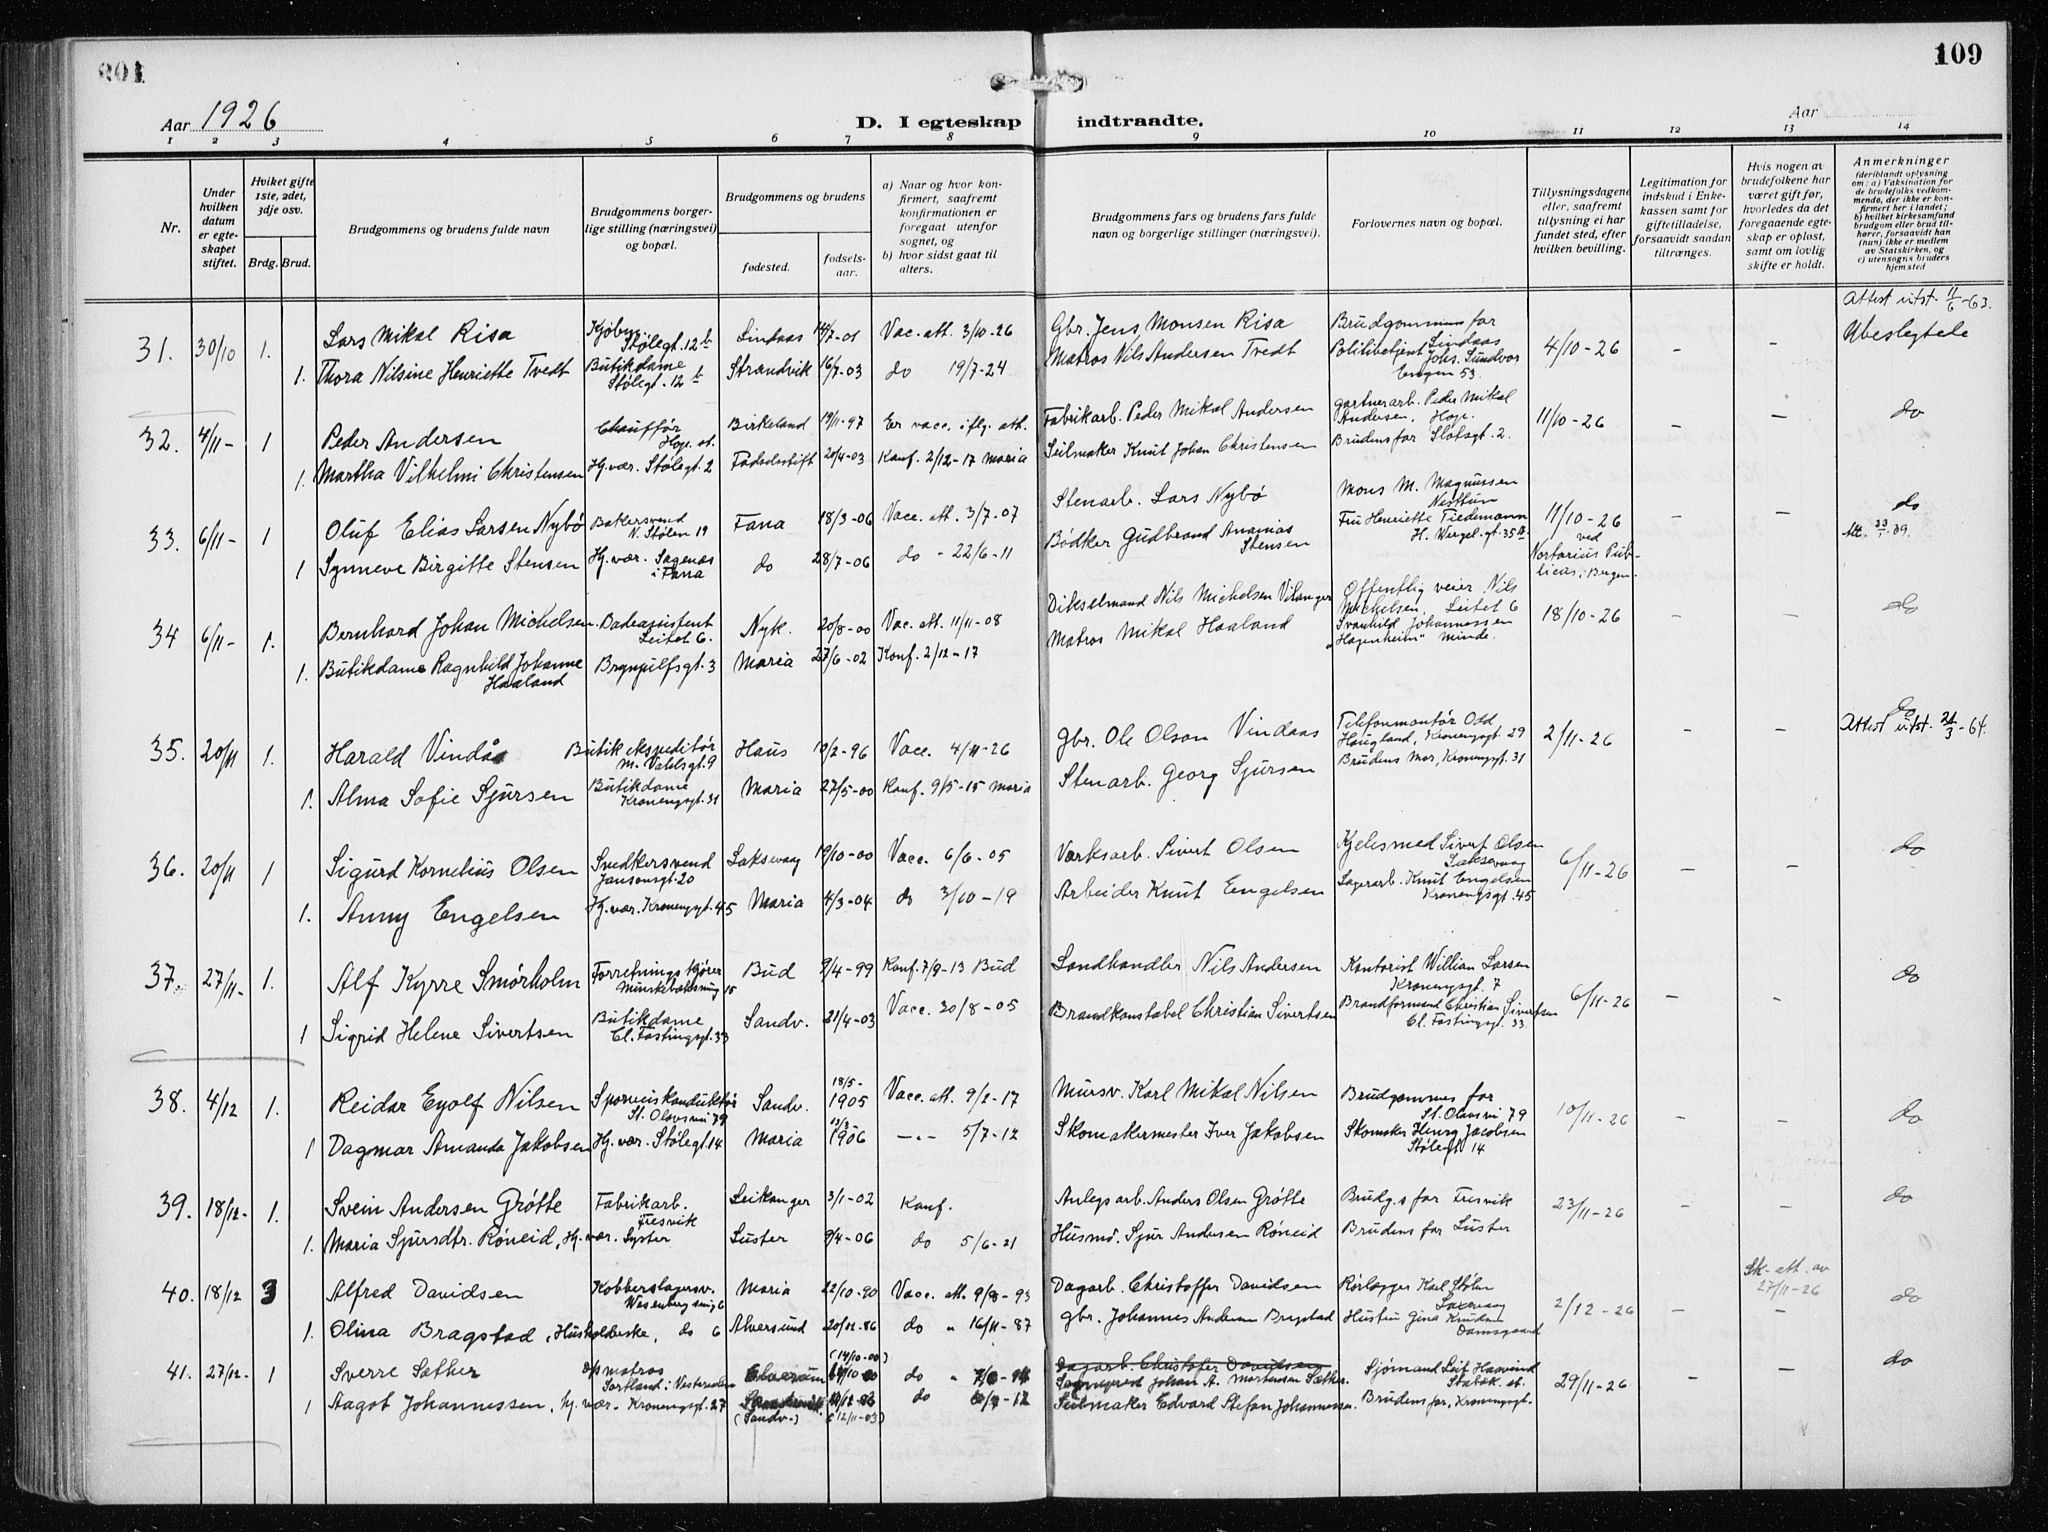 109
Aar 1926
D. I egteskap indtraadte.
Aar
1 2 3 4 5 6 7 8 9 10 11 12 13 14
Nr.
Under hvilken datum er egteskapet stiftet.
Hviket gifte 1ste, 2det, 3dje osv.
Brdg. Brud.
Brudgommens og brudens fulde navn
Brudgommens borgerlige stilling (næringsvei) og bopæl.
Brudgommens og brudens
fødested.
fødselsaar.
a) Naar og hvor konfirmert, saafremt konfirmationen er foregaat utenfor sognet, og
b) hvor sidst gaat til alters.
Brudgommens fars og brudens fars fulde navn og borgerlige stillinger (næringsvei).
Forlovernes navn og bopæl.
Tillysningsdagene eller, saafremt tillysning ei har fundet sted, efter hvilken bevilling.
Legitimation for indskud i Enkekassen samt for giftetilladelse, forsaavidt saadan tiltrænges.
Hvis nogen av brudefolkene har været gift før, hvorledes da det foregaaende egteskap er opløst, samt om lovlig skifte er holdt.
Anmerkninger
(deriblandt oplysning om: a) Vaksination for de brudefolks vedkommende, der ikke er konfirmert her i landet;
b) hvilket kirkesamfund brudgom eller brud tilhører, forsaavidt han (hun) ikke er medlem av Statskirken, og
c) utensogns bruders hjemsted
Attest utst. 11/6-63.
31. 30/10 1. Lars Mikal Risa Kjøbm. Stølegt. 12b Lindaas 14/7-01 Vac. att. 3/10-26 Gbr. Jens Monsen Risa Brudgommens far Lindaas 4/10-26 - - Ubeslegtede
1. Thora Nilsine Henriette Tvedt Butikdame Stølegt. 12b Strandvik 16/7-03 do 19/7-24 Matros Nils Andersen Tvedt Politibetjent Johs. Sundvor Engen 53.
32. 4/11- 1 Peder Andersen Chauffør Hop st. Birkeland 19/11-97 Er vacc. iflg. att. Fabrikarb. Peder Mikal Andersen Gartnerarb. Peder Mikal Andersen, Hop. 11/10-26 - - do
1. Martha Vilhelmi Christensen Hj. vær. Stølegt. 2 Fødselsstift 20/4-03 Konf. 2/12-17 Maria Seilmaker Knut Johan Christensen Brudens far
33. 6/11- 1 Oluf Elias Larsen Nybø Bakersvend N. Stølen 19 Fana 18/3-06 Vacc. att. 3/7-07 Stenarb. Lars Nybø Mons M. Magnussen Nesttun 11/10-26 ved Nortarius Publicus i Bergen. - - do
1 Synneve Birgitte Stensen Hj. vær. Sagenæs i Fana do 28/7-06 do - 22/6-11 Bødker Gudbrand Ananias Stensen Fru Henriette Tiedemann H. Wergel.gt. 35 Att.
34 6/11- 1. Bernhard Johan Michelsen Badeassistent Leitet 6. Nyk. 20/8-00 Vac. att. 11/11-08 Nils Michelsen Offentlig veier Nils Michelsen, Leitet 6 18/10-26 - - do
1. Butikdame Ragnhild Johanne Haaland Brynjulfsgt. 3 Maria 27/6-02 Konf. 2/12-17 Matros Mikal Haaland Svanhild Johannessen "Hagenheim" Minde.
35. 20/11 1. Harald Vindås Butikekspeditør M. Vahlsgt. 9 Haus 19/2-96 Vacc. 4/11-26 Gbr. Ole Olson Vindaas Telefonmontør Odd Haugland, Kroneng.gt. 29 2/11-26 - - do Attest utst. -64.
1. Alma Sofie Sjursen Butikdame Kronengsgt. 31 Maria 27/5-00 Konf. 9/5-15 Maria Stenarb. Georg Sjursen Brudens Mor, Kronengsgt. 31
36. 20/11 1 Sigurd Kornelius Olsen Snedkersvend Jansonsgt. 20 Laksevaag 19/10-00 Vacc. 6/6-05 Værksarb. Sivert Olsen Kjelesmed Sivert Olsen Laksevaag 6/11-26 - - do
1. Anny Engelsen Hj. vær. Kronengsgt. 45 Maria 4/3-04 do 3/10-19 Arbeider Knut Engelsen Lagerarb. Knut Engelsen Kronengsgt. 45
37. 27/11- 1. Alf Kyrre Smørholm Forretningskjører 15 Bud 9/4-99 Konf. 7/9-13 Bud Landhandler Nils Andersen Kontorist Willian Larsen Kronengsgt. 7 6/11-26 - - do
1 Sigrid Helene Sivertsen Butikdame Cl. Fastingsgt. 33 Sandv. 21/4-03 Vacc. 20/8-05 Brandkonstabel Christian Sivertsen Brandformand Christian Sivertsen Cl. Fastingsgt. 33.
38. 4/12 1. Reidar Eyolf Nilsen Sporveiskonduktør St. Olavsvei 79 Sandv. 18/5-1905 Vacc. att. 9/2-17 Mursv. Karl Mikal Nilsen Brudgommes far St. Olavsvei 79 10/11-26 - - do
1 Dagmar Amanda Jakobsen Hj. vær. Stølegt. 14 Maria 1906 -"- 5/7-12 Skomakermester Iver Jakobsen Skomaker Henry Jacobsen Stølegt. 14
39. 18/12- 1. Svein Andersen Grøtte Fabrikarb. Fresvik Leikanger 3/1-02 Konf. Anlegsarb. Anders Olsen Grøtte Brudg.s far Fresvik 23/11-26 - - do
1. Maria Sjursdtr. Røneid, Hj. vær. Lyster Luster 9/4-06 do 5/6-21 Husm. Sjur Andersen Røneid Brudens far Luster
40. 18/12 3 Alfred Davidsen Kobberslagersv. Wesenbergsmug 6 Maria 22/10-90 Vacc. att. 9/8-93 Dagarb. Christoffer Davidsen Rørlægger Karl Stølen Laxevaag 2/12-26 - Sk. att. av 27/11-26 - do
1. Olina Bragstad, Husholderske, do 6 Alversund 20/12-86 do " 16/11-87 Gbr. Johannes Andersen Bragstad Hustru Gina Knudsen Damsgaard
41. 27/12- 1 Sverre Sæther matros Sortland i Vesteraalen Elverum (14/10-00) do Dagarb. Christofer Davidsen Johan A. Mortensen Sæther Sjømand Leif Haavind Stabæk st. 29/11-26 - - do
1 Aagot Johannessen, hj. vær. Kronengsgt. 27 (Sandv.) (12/11-03) do Seilmaker Edvard Stefan Johannessen. Brudens far, Kronengsgt.